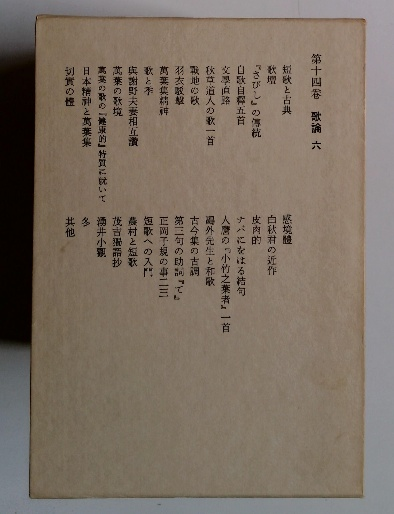 第十四卷　歌論　六
短歌と古典
歌壇
『さびし』の傳統
自歌自釋五首
文學直路
秋草道人の歌一首
戰地の歌
羽衣駁擊
萬葉集精神
歌と季
與謝野夫妻相互讚
萬葉の歌境
萬葉の歌の『健康的』特質に就いて
日本精神と萬葉集
切實の體
感境體
白秋君の近作
皮肉的
ナバにをはる結句
人麿の『小竹之葉者』一首
鷗外先生と和歌
古今集の古調
第三句の助詞『て』
正岡子規の事二三
短歌への入門
農村と短歌
茂吉獨語抄
湧井小觀
冬
其他